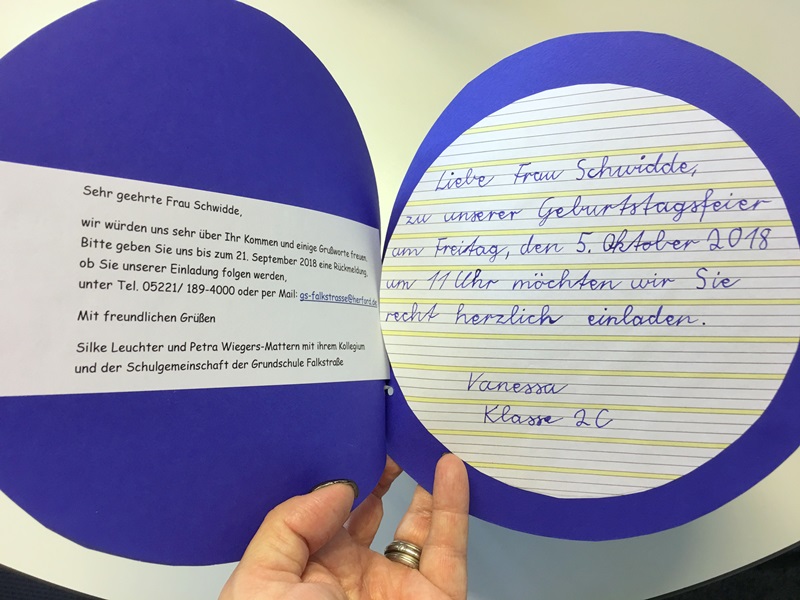 Sehr geehrte Frau Schwidde,
wir würden uns sehr über Ihr Kommen und einige Grußworte freuen.
Bitte geben Sie uns bis zum 21. September 2018 eine Rückmeldung,
ob Sie unserer Einladung folgen werden,
unter Tel. 05221/ 189-4000 oder per Mail: gs-falkstrasse@herford.de
Mit freundlichen Grüßen
Silke Leuchter und Petra Wiegers-Mattern mit ihrem Kollegium
und der Schulgemeinschaft der Grundschule Falkstraße
Liebe Frau Schwidde,
zu unserer Geburtstagsfeier
am Freitag, den 5. Oktober 2018
um 11 Uhr möchten wir Sie
recht herzlich einladen.
Vanessa
Klasse 2C